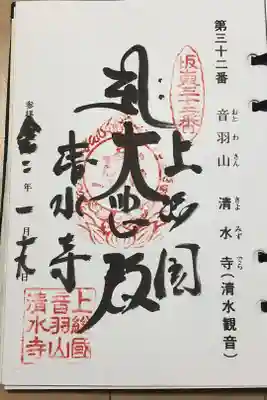 第三十二番
音羽山 清水寺(清水観音)
おとわさん きよみずでら
坂東三十二番
上総国
大悲殿
清水寺
二年一月
日
上総國
音羽山
清水寺